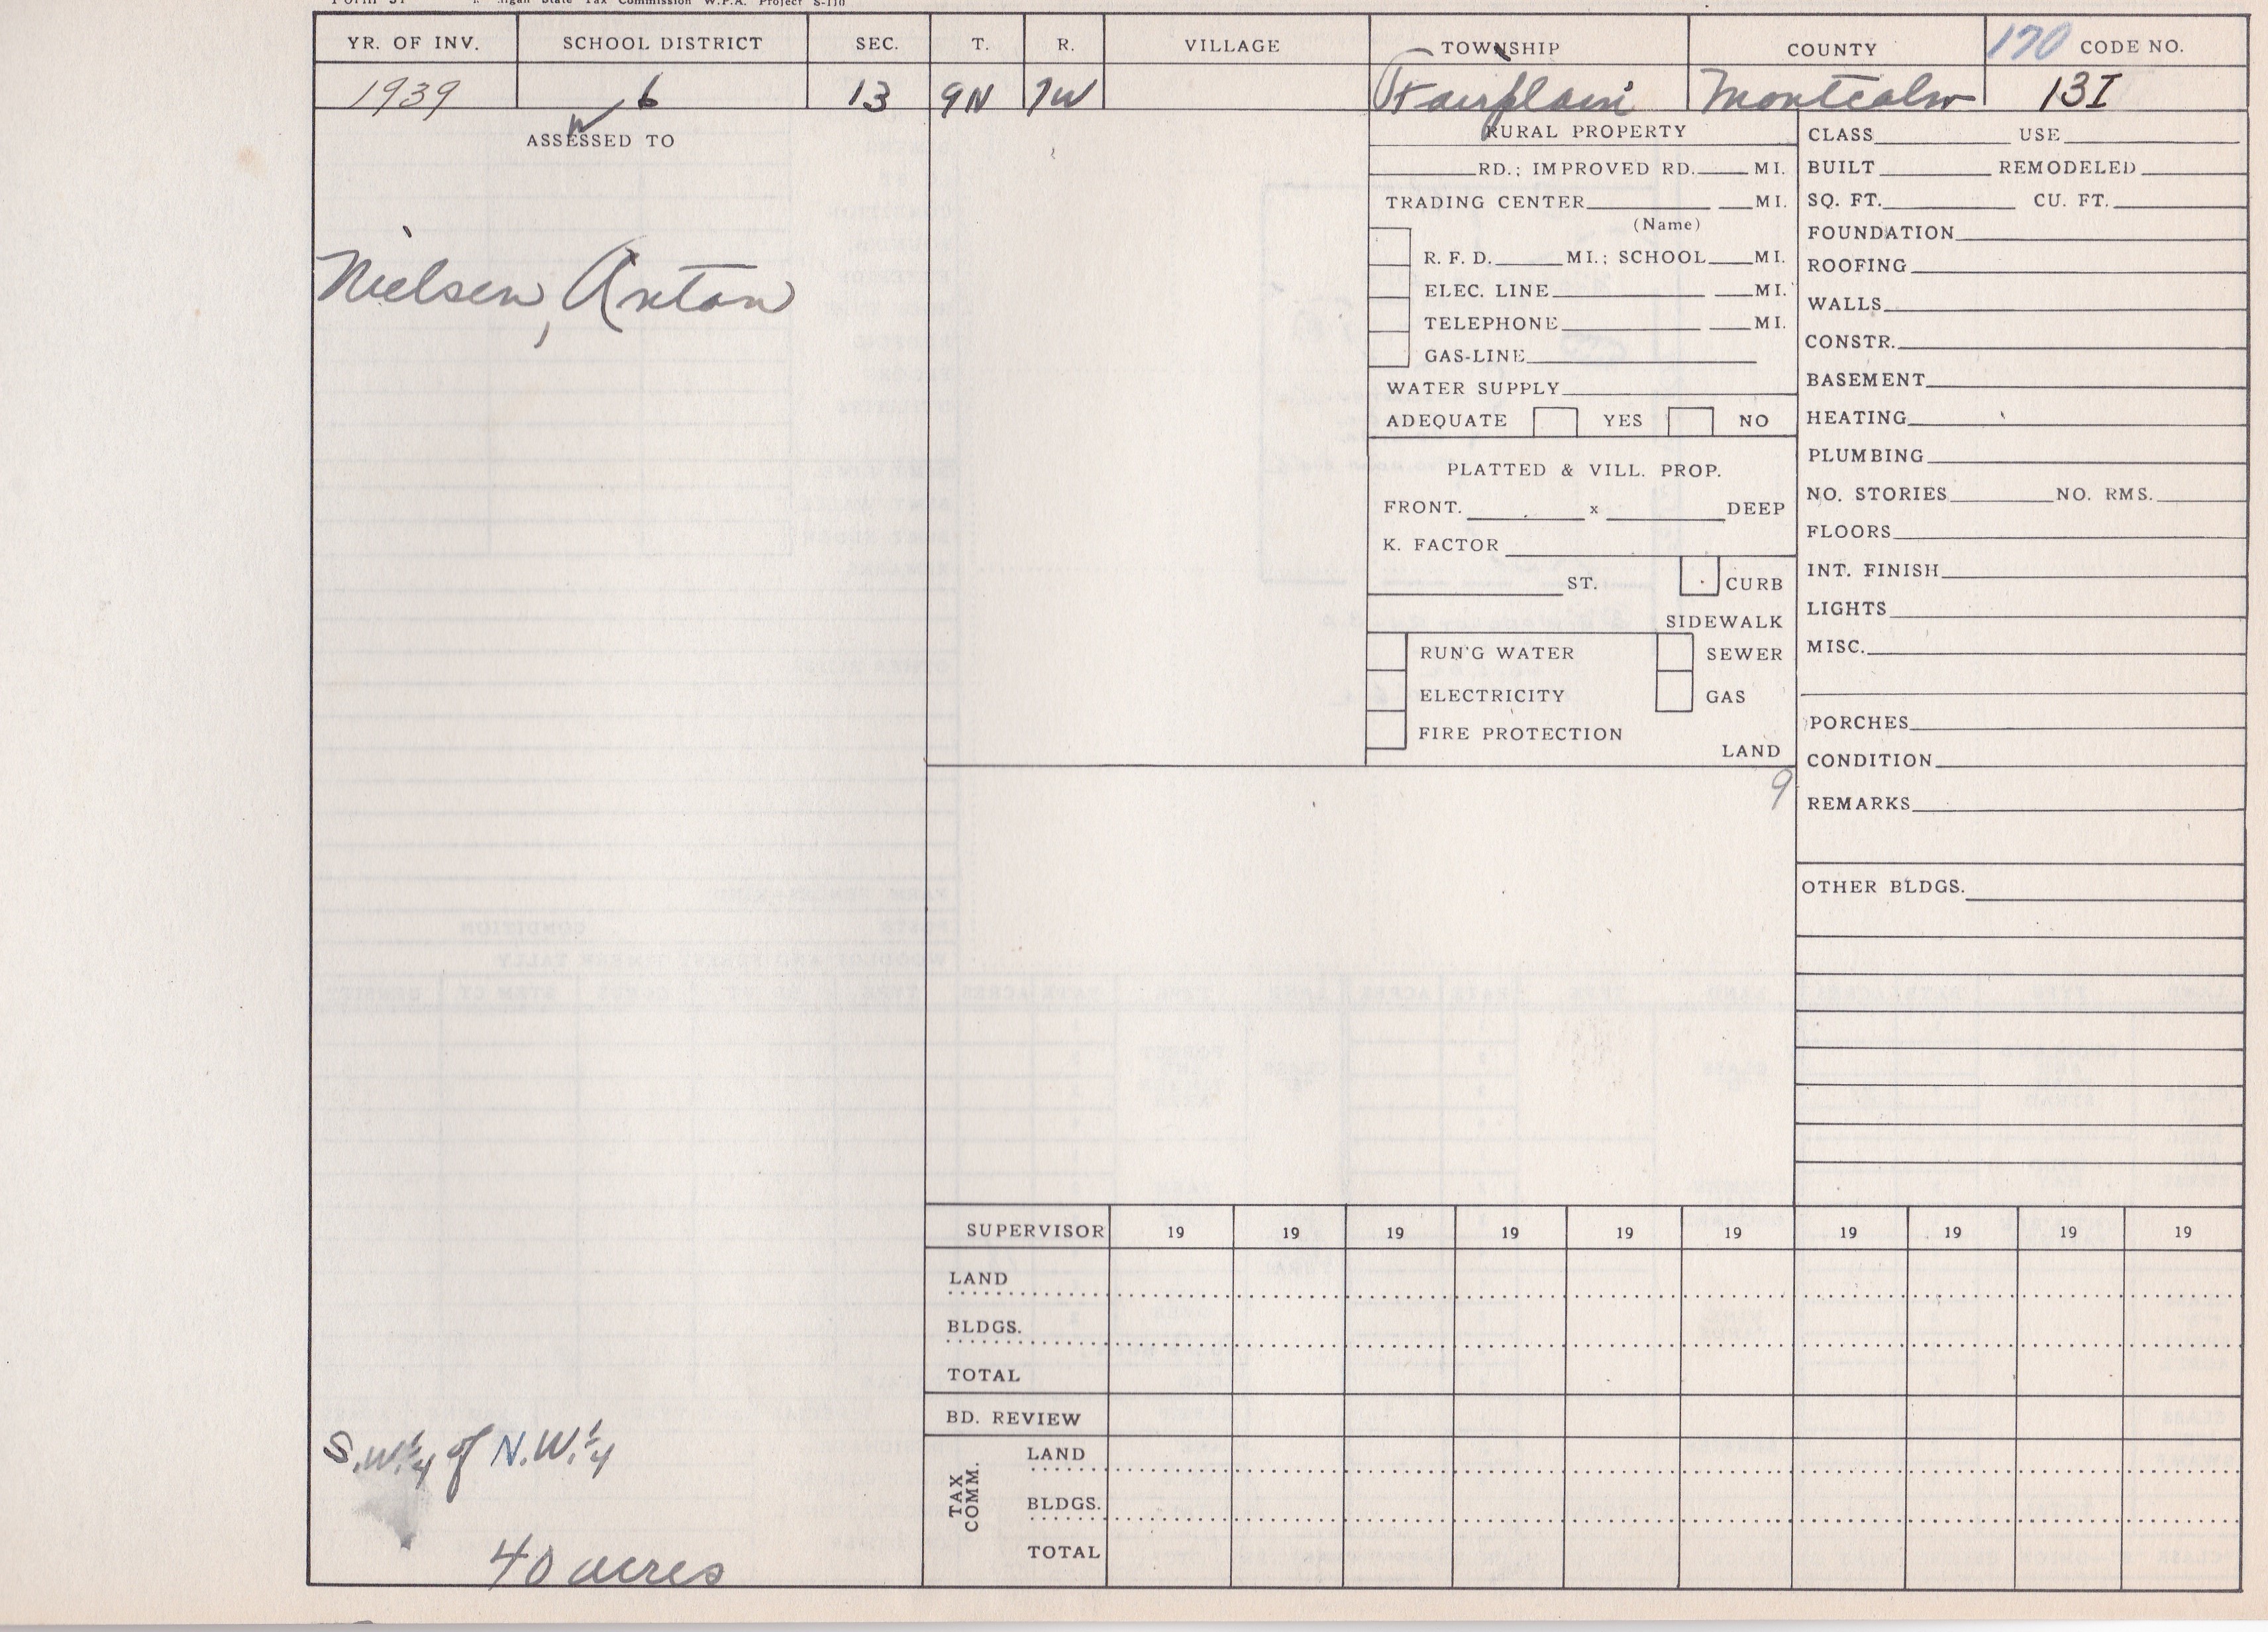 State Tax Commission W.P.A. Project S-110
YR. OF INV. SCHOOL DISTRICT SEC. T. R. VILLAGE TOWNSHIP COUNTY 170 CODE NO.
1939 6 13 9N 7W Fairplain Montcalm 13I
ASSESSED TO
Nielsen, Anton
S.W. 1/4 of N.W. 1/4
40 acres
RURAL PROPERTY
RD.; IMPROVED RD. MI.
TRADING CENTER MI.
(Name)
R. F. D. MI.; SCHOOL MI.
ELEC. LINE MI.
TELEPHONE MI.
GAS-LINE
WATER SUPPLY
ADEQUATE YES NO
PLATTED & VILL. PROP.
FRONT. x DEEP
K. FACTOR
ST. CURB
SIDEWALK
RUN'G WATER SEWER
ELECTRICITY GAS
FIRE PROTECTION
LAND
9
CLASS USE
BUILT REMODELED
SQ. FT. CU. FT.
FOUNDATION
ROOFING
WALLS
CONSTR.
BASEMENT
HEATING
PLUMBING
NO. STORIES NO. RMS.
FLOORS
INT. FINISH
LIGHTS
MISC.
PORCHES
CONDITION
REMARKS
OTHER BLDGS.
SUPERVISOR 19 19 19 19 19 19 19 19 19 19
LAND
BLDGS.
TOTAL
BD. REVIEW
TAX COMM.
LAND
BLDGS.
TOTAL